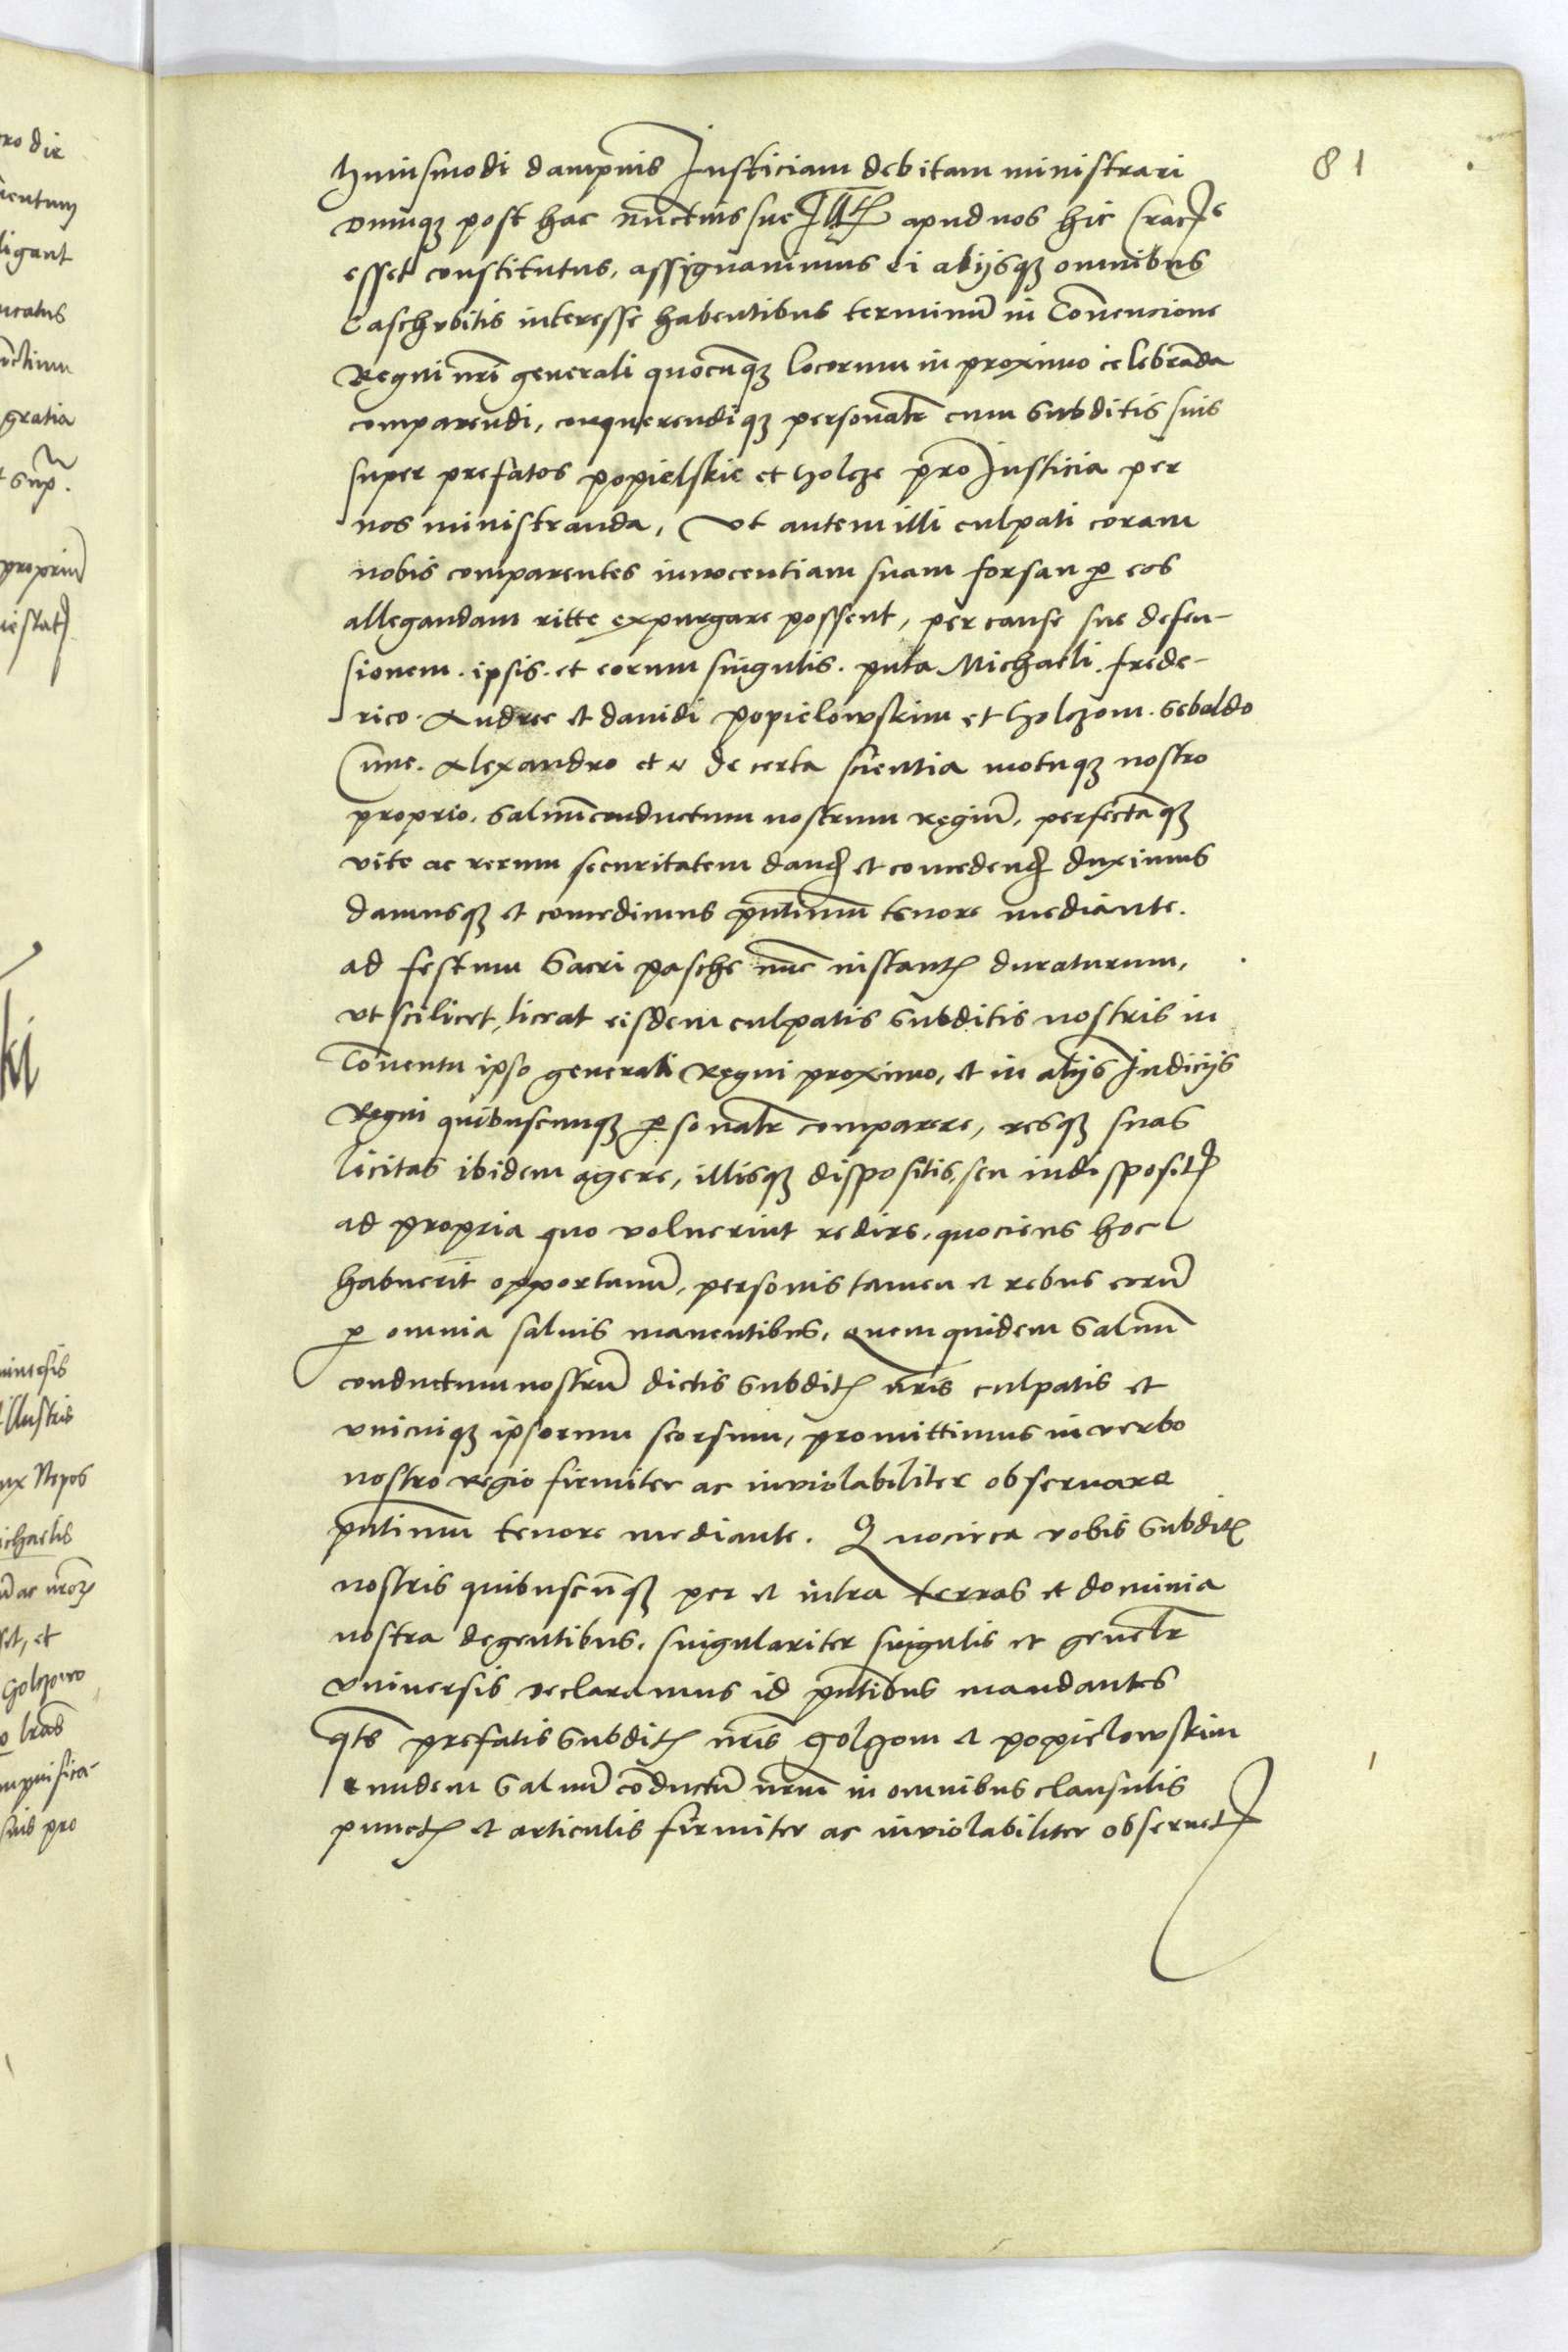 81
huiusmodi dampnis Iusticiam debitam ministrari
Dumqz post hac nunctius sue apud nos hic Crac
esset constitutus, assignavimus ei alijsqz omnibus
Caschvbitis interesse habentibus terminũ in Cõvencione
Regni nr̃i generali quocũqz locorum in proximo celebrãda
comparendi, conquerendiqz personalr̃ cum Subditis suis
super prefatos popielskie et holcze pro Iusticia per
nos ministranda, Vt autem illi culpati coram
nobis comparentes innocentiam suam forsan p eos
allegandam ritte expurgare possent, per cause sue defen-
sionem . ipsis . et eorum singulis . puta Michaeli . frede-
rico . Andree et davidi popielowskim et holczom . Sebaldo
Cune . Alexandro et de certa scientia motuqz nostro
proprio. Salvũconductum nostrum regiũ, perfectãqz
vite ac rerum securitatem dand et concedend duximus
damusqz et concedimus pñtium tenore mediante.
ad festum Sacri pasche nũc instant duraturum,
vt scilicet, liceat eisdem culpatis Subditis nostris in
Cõventu ipso generali Regni proximo, et in alijs Iudicijs
Regni quibuscumqz psonalr̃ comparere, resqz suas
licitas ibidem agere, illisqz dispositis, seu indisposit
ad propria quo voluerint redire, quociens hoc
habuerĩt opportunũ, personis tamen et rebus eorũ
p omnia salvis manentibus, Quem quidem Salvũ
conductum nostrũ dictis Subdit nr̃is culpatis et
vnicuiqz ipsorum seorsum, promittimus in verbo
nostro regio firmiter ac inviolabiliter observare
pñtium tenore mediante. Quocirca vobis Subdit
nostris quibuscũqz per et intra terras et dominia
nostra degentibus, singulariter singulis et genelr̃
Vniversis declaramus id pñtibus mandantes
qt̃s prefatis Subdit nr̃is Golczom et popielowskim
eundem Salvũ cõductũ nr̃um in omnibus clausulis
punct et articulis firmiter ac inviolabiliter observet